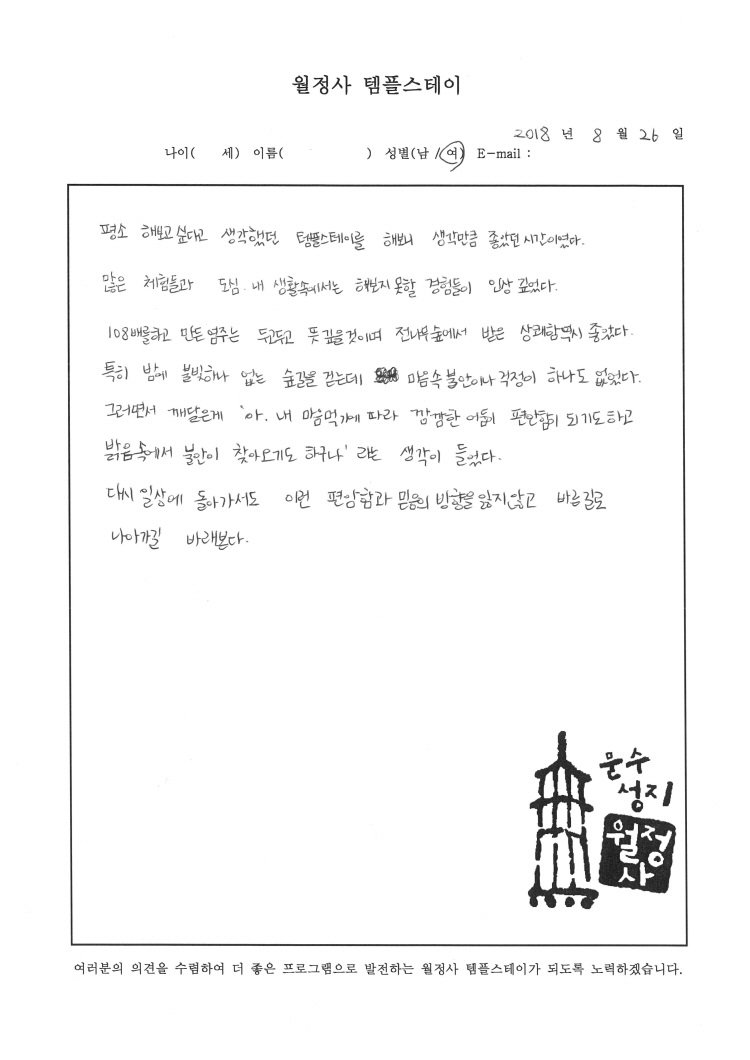 월정사 템플스테이
2018 년 8 월 26 일
나이( 세) 이름( ) 성별(남 / 여) E-mail :
평소 해보고 싶다고 생각했던 템플스테이를 해보니 생각만큼 좋았던 시간이였다.
많은 체험들과 도심 내 생활속에서는 해보지 못할 경험들이 인상 깊었다.
108배를하고 만든 염주는 두고두고 뜻 깊을것이며 전나무 숲에서 받은 상쾌함역시 좋았다.
특히 밤에 불빛하나 없는 숲길을 걷는데 마음속 불안이나 걱정이 하나도 없었다.
그러면서 깨달은게 '아. 내 마음먹기에 따라 깜깜한 어둠이 편안함이 되기도하고
밝음속에서 불안이 찾아오기도 하구나' 라는 생각이 들었다.
다시 일상에 돌아가서도 이런 편안함과 믿음의 방향을 잃지않고 바른길로
나아가길 바래본다.
문수
성지
월정
사
여러분의 의견을 수렴하여 더 좋은 프로그램으로 발전하는 월정사 템플스테이가 되도록 노력하겠습니다.